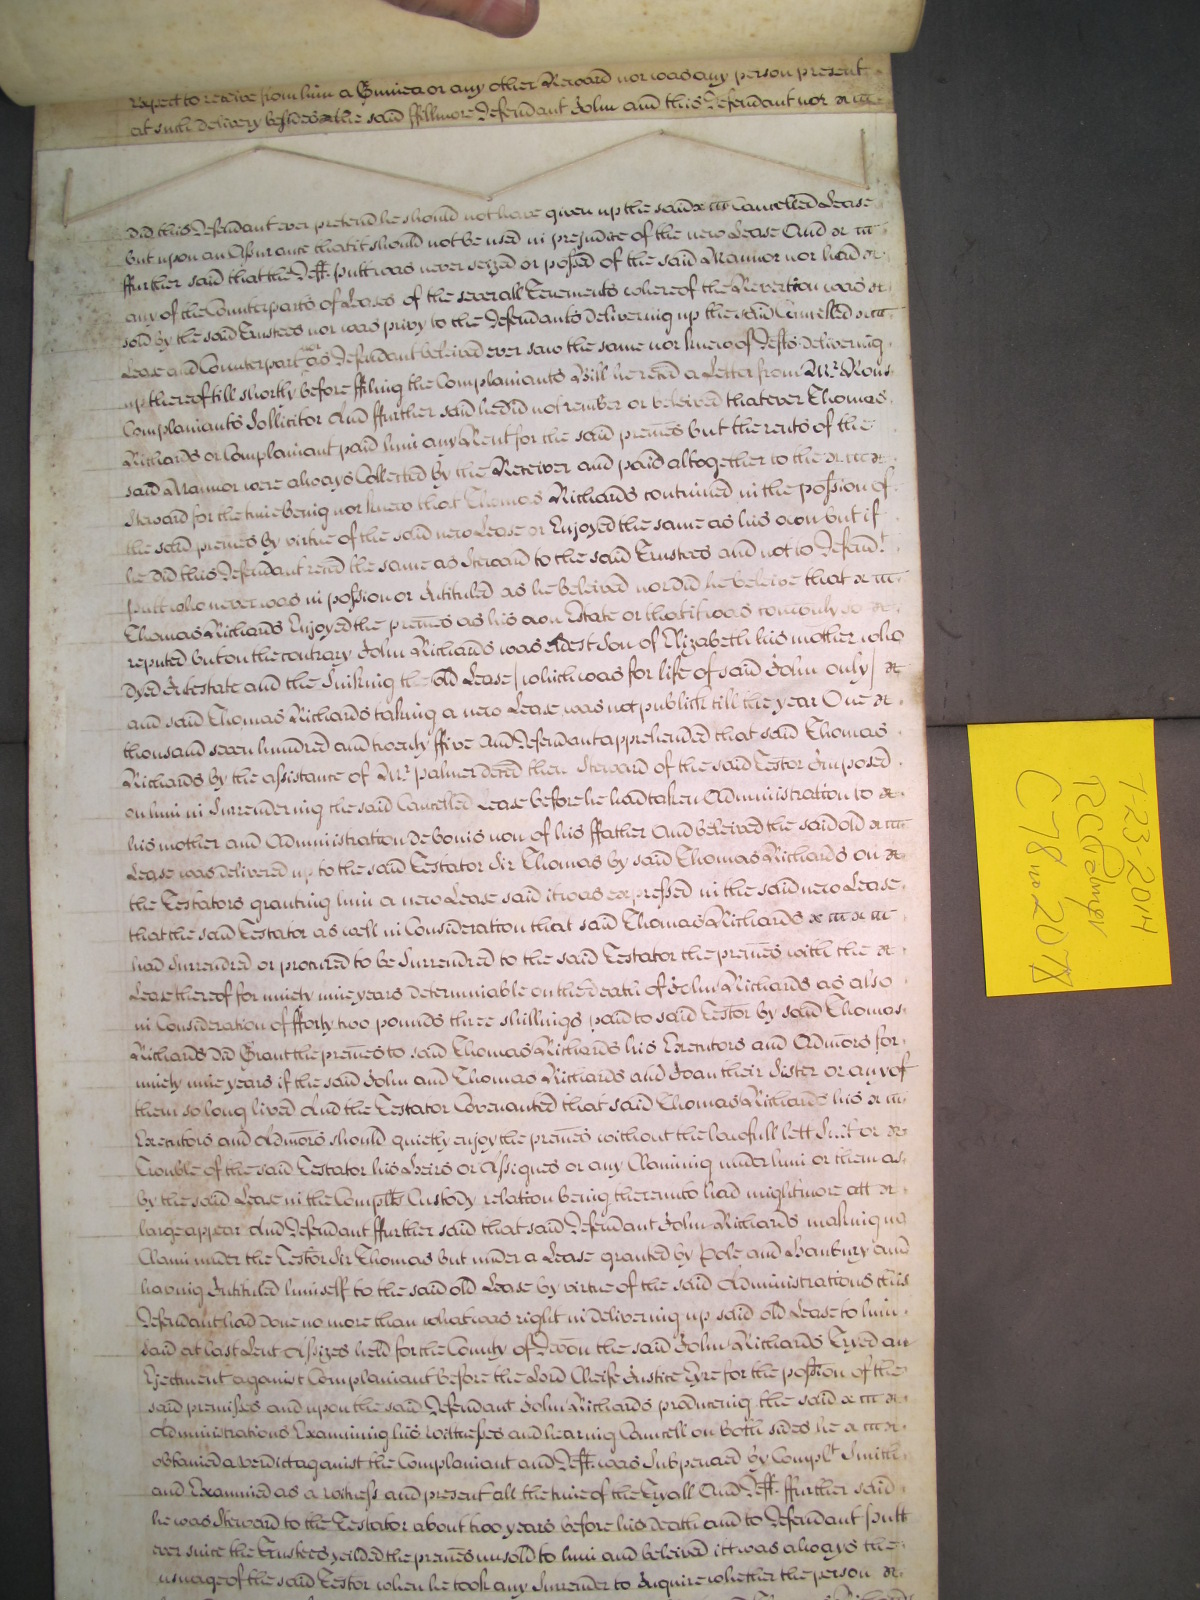 expect to receive from him a Guinea or any other Reward nor was any person present
at such delivery besides the said ffillmore Defendant John and this Defendant nor
did this Defendant ever pretend he should not have given up the said Cancelled Lease
but upon an Assurance that it should not be used in prejudice of the new Lease And
ffurther said that the Deft. Putt was never seized or possed of the said Mannor nor had
any of the Counterparts of Leases of the severall Tenements whereof the Revertion was
sold by the said Trustees nor was privy to the Defendants delivering up the said Cancelled
Lease and Counterpart as Defendant beleived ever saw the same nor knew of Defts delivering
up thereof till shortly before ffiling the Complainants Bill he reced a Letter from Mr.
Complainants Sollicitor And ffurther said he did not rember or beleived that ever Thomas
Richards or Complainant paid him any Rent for the said premes but the rents of the
said Mannor were always Collected by the Receiver and paid altogether to the
Steward for the time being nor knew that Thomas Richards continued in the possion of
the said premes by virtue of the said new Lease or Enjoyed the same as his own but if
he did this Defendant said the same as Steward to the said Trustees and not to Defendt
Putt who never was in possion or Intituled as he beleived nor did he beleive that
Thomas Richards Enjoyed the premes as his own Estate or that it was comonly so
reputed but on the contrary John Richards was eldest Son of Elizabeth his mother who
dyed Intestate and the Sinking the old Lease (which was for life of said John only)
and said Thomas Richards taking a new Lease was not publick till the year One
thousand seven hundred and twenty ffive And Defendant apprehended that said Thomas
Richards by the assistance of Mr. Palmer deced then Steward of the said Testor Imposed
on him in Surrendering the said Cancelled Lease before he had taken Administration to
his mother and Administration de bonis non of his ffather And beleived the said old
Lease was delivered up to the said Testator Sir Thomas by said Thomas Richards on
the Testators granting him a new Lease said it was expressed in the said new Lease
that the said Testator as well in Consideration that said Thomas Richards
had Surrendred or procured to be Surrendred to the said Testator the premes with the
Lease thereof for ninety nine years determinable on the death of John Richards as also
in Consideration of fforty two pounds three shillings paid to said Testor by said Thomas
Richards did Grant the premes to said Thomas Richards his Executors and Admors for
ninety nine years if the said John and Thomas Richards and Joan their Sister or any of
them so long lived And the Testator Covenanted that said Thomas Richards his
Executors and Admors should quietly enjoy the premes without the lawfull lett Suit or
Trouble of the said Testator his Heirs or Assignes or any Claiming under him or them as
by the said Lease in the Complts Custody relation being thereunto had might more att
large appear And Defendant ffurther said that said Defendant John Richards making no
Claim under the Testor Sir Thomas but under a Lease granted by Pole and Hanbury and
having Intituled himself to the said old Lease by virtue of the said Administrations this
Defendant had done no more than what was right in delivering up said old Lease to him
said at last Lent Assizes held for the County of Devon the said John Richards Tryed an
Ejectment against Complainant before the Lord Cheife Justice Eyre for the possion of the
said premisses and upon the said Defendant John Richards produceing the said
Administrations Examining his witnesses and hearing Councell on both sides he
obtained a verdict against the Complainant and Deft. was Subpenaed by Complt Smith
and Examined as a witness and present all the time of the Tryall And Deft. ffurther said
he was Steward to the Testator about two years before his death and to Defendant Putt
ever since the Trustees yeilded the premes unsold to him and beleived itt was always the
usuage of the said Testor when he took any Surrender to Inquire whether the person
7-23-2014
C78 no 2078